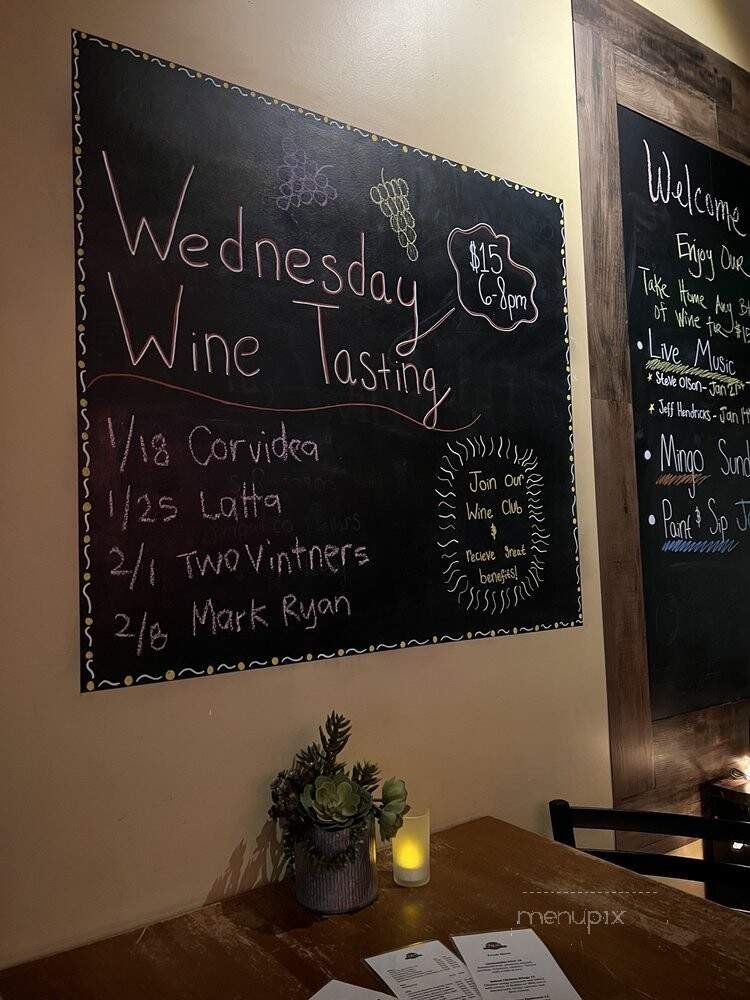 Wednesday
Wine Tasting
$15
6-8pm
1/18 Corvidea
1/25 Latta
2/1 Two Vintners
2/8 Mark Ryan
Join Our
Wine Club
&
recieve great
benefits!
Welcome
Enjoy Our
Take Home Any
of Wine for $15
Live Music
Steve Olson - Jan 21st
Jeff Hendricks - Jan
Mingo
Paint & Sip
menupix